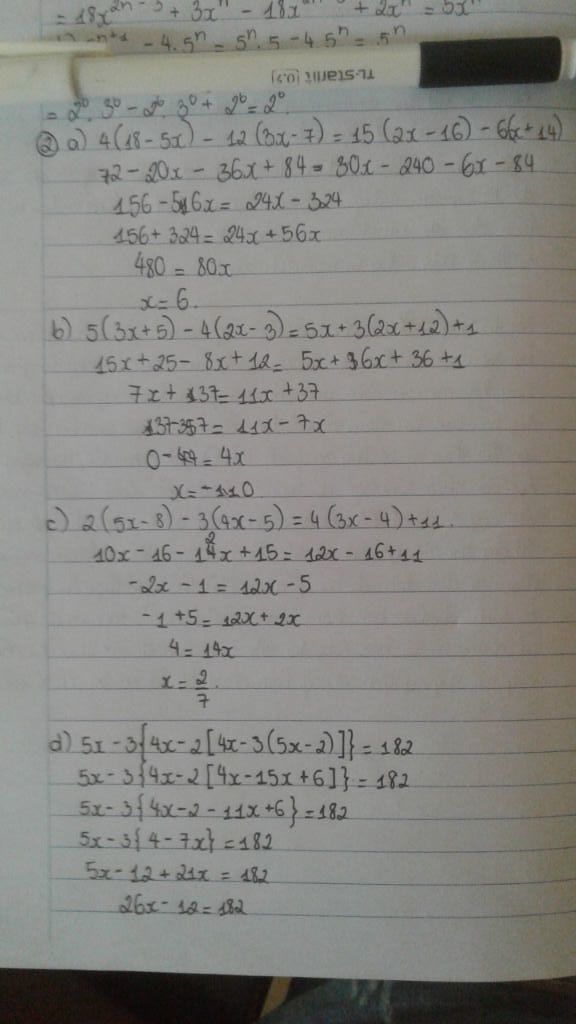 = 18x^{2n-3} + 3x^n - 18x + 2x^n = 5x^n
- 4.5^n = 5^n.5 - 4.5^n = 5^n
TL-Starlit [0.5]
= 2^0. 3^0 - 2^0. 3^0 + 2^0 = 2^0.
② a) 4(18-5x) - 12(3x-7) = 15(2x-16) - 6(x+14)
72 - 20x - 36x + 84 = 30x - 240 - 6x - 84
156 - 56x = 24x - 324
156 + 324 = 24x + 56x
480 = 80x
x = 6.
b) 5(3x+5) - 4(2x-3) = 5x + 3(2x+12) + 1
15x + 25 - 8x + 12 = 5x + 6x + 36 + 1
7x + 37 = 11x + 37
37 - 37 = 11x - 7x
0 = 4x
x = 0
c) 2(5x-8) - 3(4x-5) = 4(3x-4) + 11.
10x - 16 - 12x + 15 = 12x - 16 + 11
-2x - 1 = 12x - 5
-1 + 5 = 12x + 2x
4 = 14x
x = 2/7.
d) 5x - 3{4x - 2[4x - 3(5x-2)]} = 182
5x - 3{4x - 2[4x - 15x + 6]} = 182
5x - 3{4x - 2 - 11x + 6} = 182
5x - 3{4 - 7x} = 182
5x - 12 + 21x = 182
26x - 12 = 182